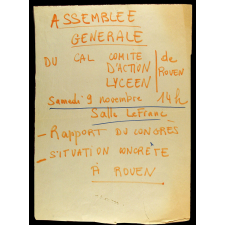 ASSEMBLEE
GENERALE
DU CAL COMITE D'ACTION LYCEEN de ROUEN
Samedi 9 novembre 14h
Salle Lefranc
- RAPPORT DU CONGRES
- SITUATION CONCRETE
À ROUEN